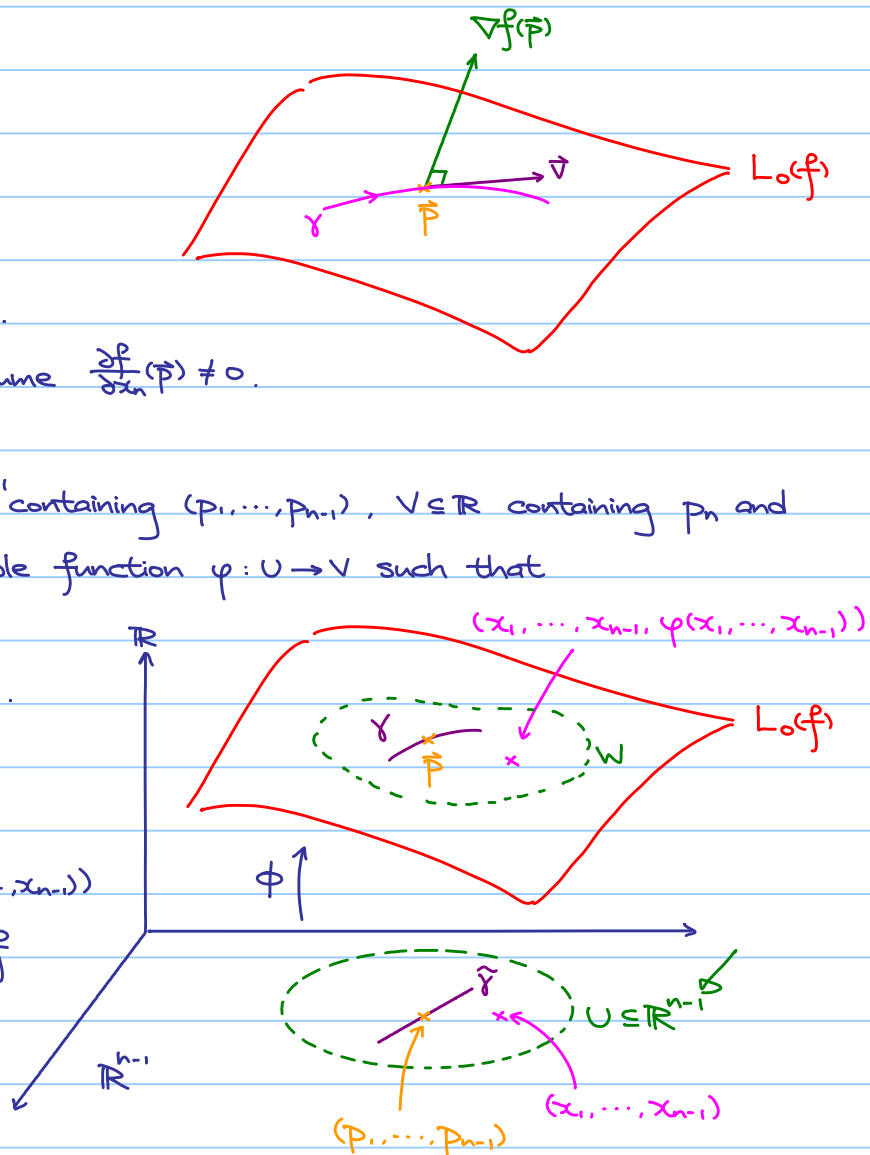 ∇f(p⃗)
v⃗
L₀(f)
γ
p⃗
.
∂f/∂xₙ (p⃗) ≠ 0.
containing (p₁,⋯,pₙ₋₁), V ⊆ ℝ containing pₙ and
function φ : U → V such that
(x₁,⋯,xₙ₋₁, φ(x₁,⋯,xₙ₋₁))
ℝ
.
γ
L₀(f)
p⃗
W
,xₙ₋₁))
ϕ
γ̃
U ⊆ ℝⁿ⁻¹
ℝⁿ⁻¹
(x₁,⋯,xₙ₋₁)
(p₁,⋯,pₙ₋₁)